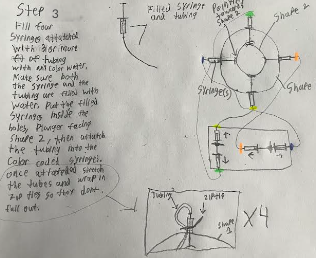 Step 3
Fill four
Syringes attatched
with 3 or more
ft of tubing
with any color water,
make sure both
the syringe and the
tubing are filled with
water. Put the filled
Syringes inside the
holes, Plunger facing
Shape 2, then attatch
the tubing into the
Color coded syringes.
once attatched stretch
the tubes and wrap in
zip ties so they dont
fall out.
Filled Syringe
and tubing
Shape 2
Syringe(s)
Shape
Tubing
ziptie
Shape
X4